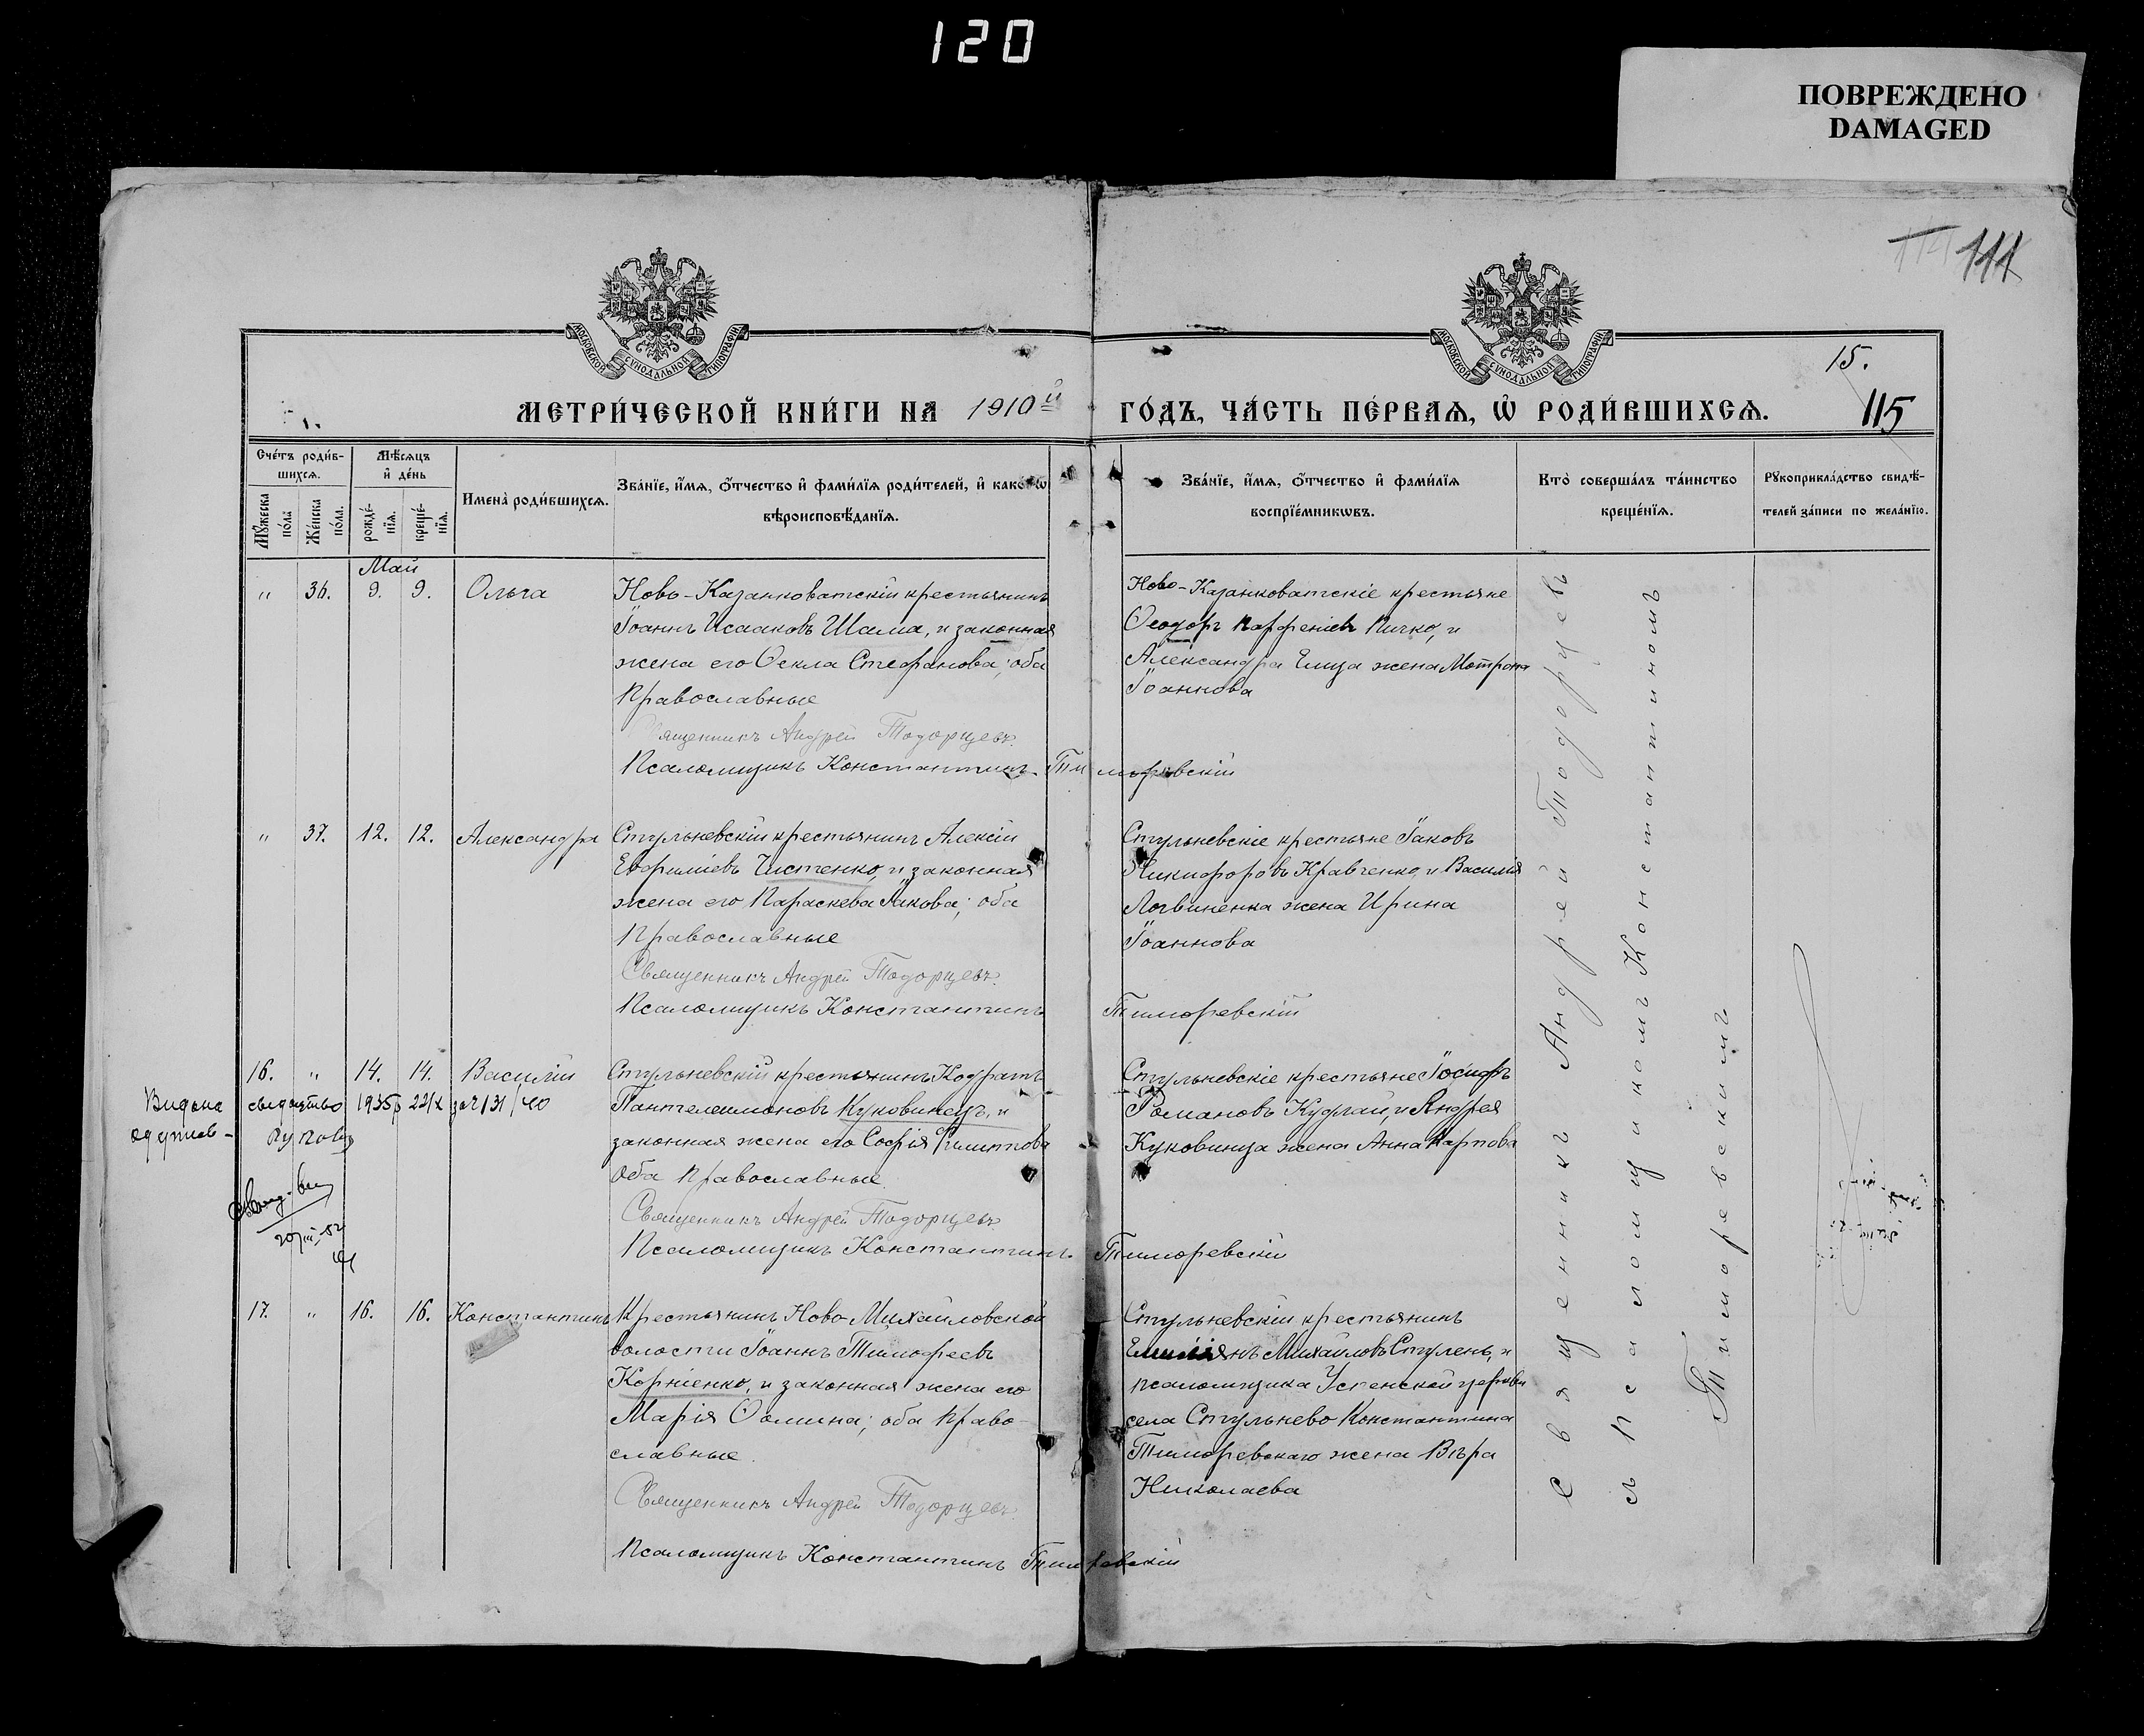 120
ПОВРЕЖДЕНО
DAMAGED
111
МОСКОВСКОЙ СѴНОДАЛЬНОЙ ТИПОГРАФІИ
МОСКОВСКОЙ СѴНОДАЛЬНОЙ ТИПОГРАФІИ
15.
МЕТРИ́ЧЕСКОЙ КНИ́ГИ НА 1910й ГО́ДЪ, ЧА́СТЬ ПЕ́РВАѦ, Ѡ РОДИ́ВШИХСѦ. 115
Сче́тъ роди́в-
шихсѧ.
Мꙋ́жеска по́ла
Же́нска по́ла.
Мѣ́сѧцъ
и де́нь
рожде́-
нїѧ.
креще́-
нїѧ.
Имена̀ роди́вшихсѧ.
Зва́нїе, и́мѧ, ѻ́тчество и фами́лїѧ роди́телей, и како́гѡ
вѣроисповѣ́данїѧ.
Зва́нїе, и́мѧ, ѻ́тчество и фами́лїѧ
воспрїе́мникѡвъ.
Кто̀ соверша́лъ та́инство
креще́нїѧ.
Рꙋкоприкла́дство свидѣ́-
телей за́писи по жела́нїю.
Май
" 36. 9. 9. Ольга
Ново-Казанковатскій крестьянинъ
Іоаннъ Исааковъ Шама, и законная
жена его Ѳекла Стефанова; оба
Православные
Священникъ Андрей Тодорцевъ.
Псаломщикъ Константинъ Тиморевскій
Ново-Казанковатскіе крестьяне
Ѳеодоръ Парфеніевъ Пичко, и
Александра Елица жена Мотрона
Іоаннова
" 37. 12. 12. Александра
Стульневскій крестьянинъ Алексій
Евфиміевъ Чистенко, и законная
жена его Параскева Іакова; оба
Православные
Священникъ Андрей Тодорцевъ.
Псаломщикъ Константинъ Тиморевскій
Стульневскіе крестьяне Іаковъ
Никифоровъ Кравченко, и Василія
Логвиненка жена Ирина
Іоаннова
16. " 14. 14. Василій
Видана свидоцтво 1935р 22/X за №
Стульневскій крестьянинъ Кодратъ
Пантелеимоновъ Куковинецъ, и
законная жена его Софія Филиппова
оба Православные
Священникъ Андрей Тодорцевъ
Псаломщикъ Константинъ Тиморевскій
Стульневскіе крестьяне Іосифъ
Романовъ Кудлай, и Андрея
Куковинца жена Анна Карпова
17. " 16. 16. Константинъ
Крестьянинъ Ново-Михайловской
волости Іоаннъ Тимофеевъ
Корніенко, и законная жена его
Марія Ѳомина; оба Право-
славные.
Священникъ Андрей Тодорцевъ.
Псаломщикъ Константинъ Тиморевскій
Стульневскій крестьянинъ
Емиліянъ Михайловъ Стулень, и
псаломщика Успенской церкви
села Стульнево Константина
Тиморевскаго жена Вѣра
Николаева
Священникъ Андрей Тодорцевъ
съ Псаломщикомъ Константиномъ
Тиморевскимъ